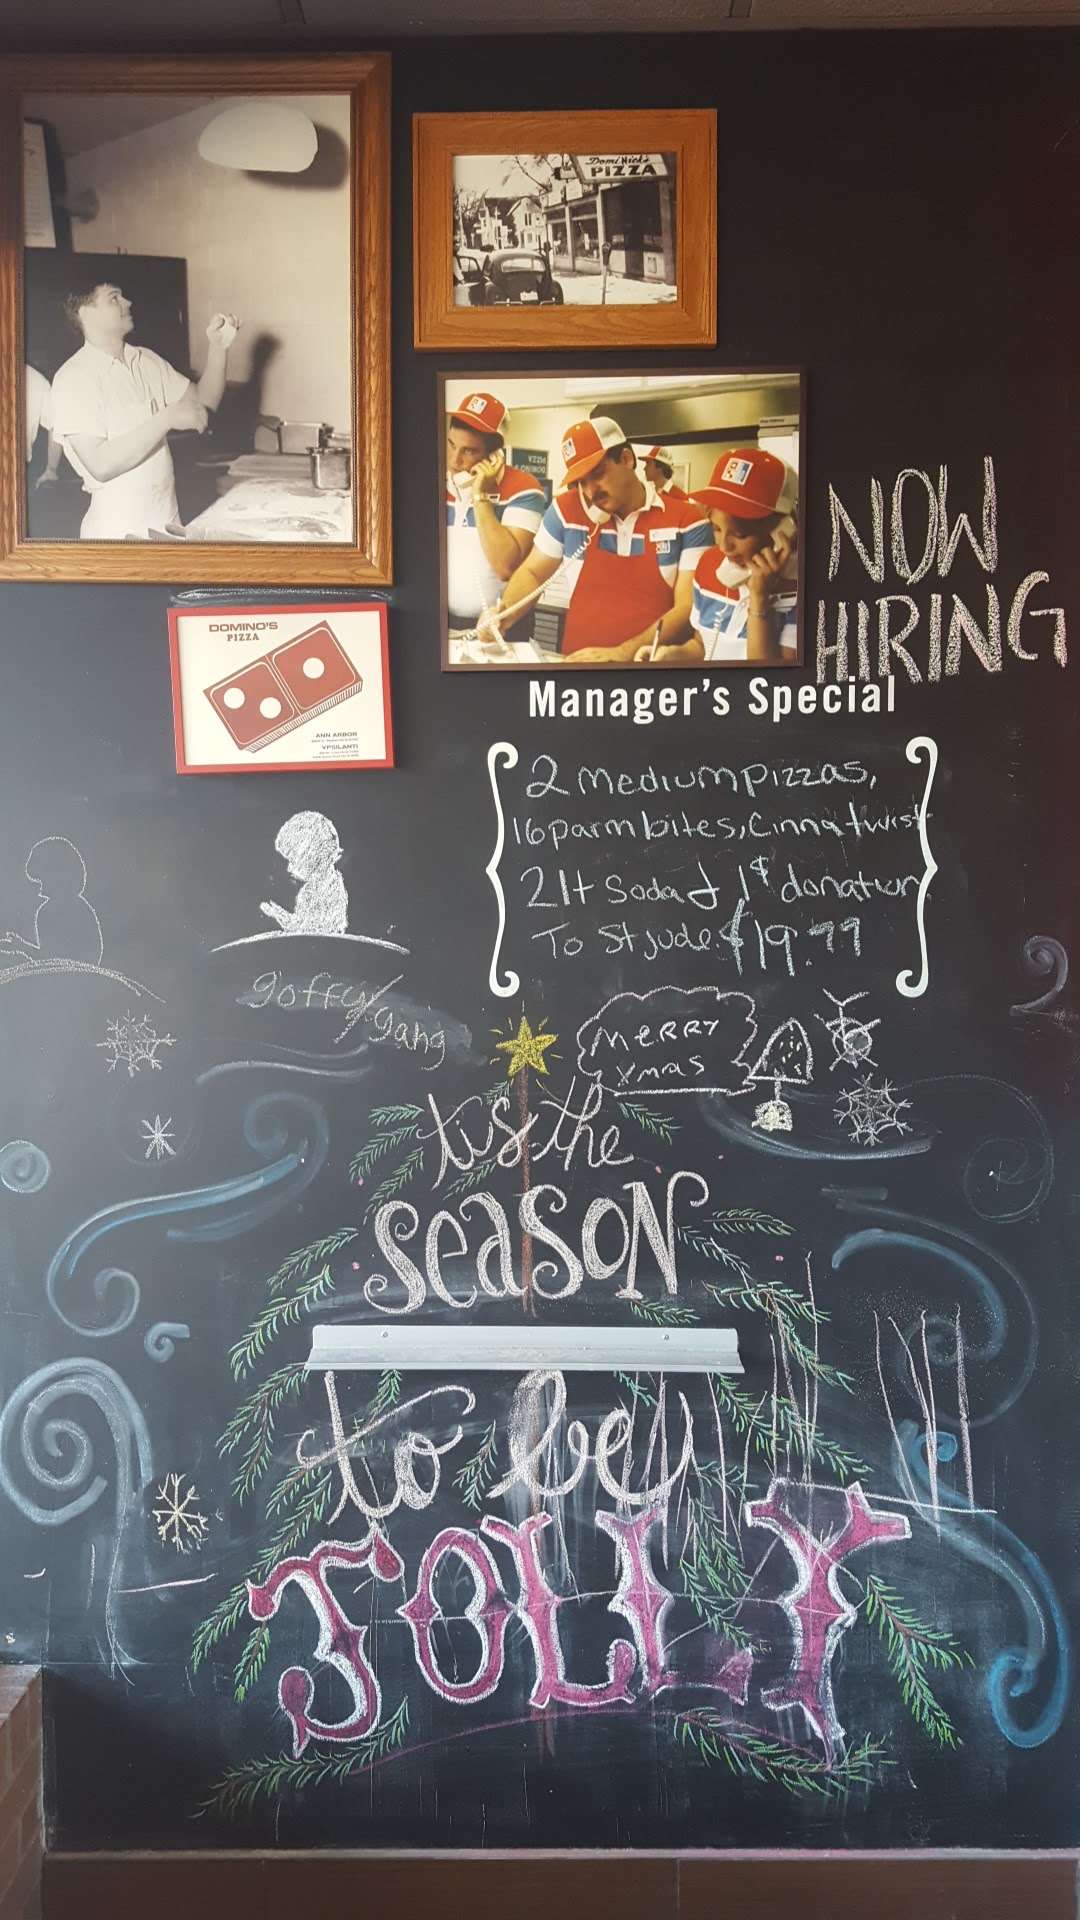 Domi Nick's
PIZZA
DOMINO'S
PIZZA
NOW
HIRING
DOMINO'S
PIZZA
ANN ARBOR
YPSILANTI
Manager's Special
2 medium pizzas,
16 parm bites, Cinna twist
2 lt soda & 1$ donation
To St jude $19.99
goffy/gang
MERRY
xmas
'tis the
SEASON
to be
JOLLY